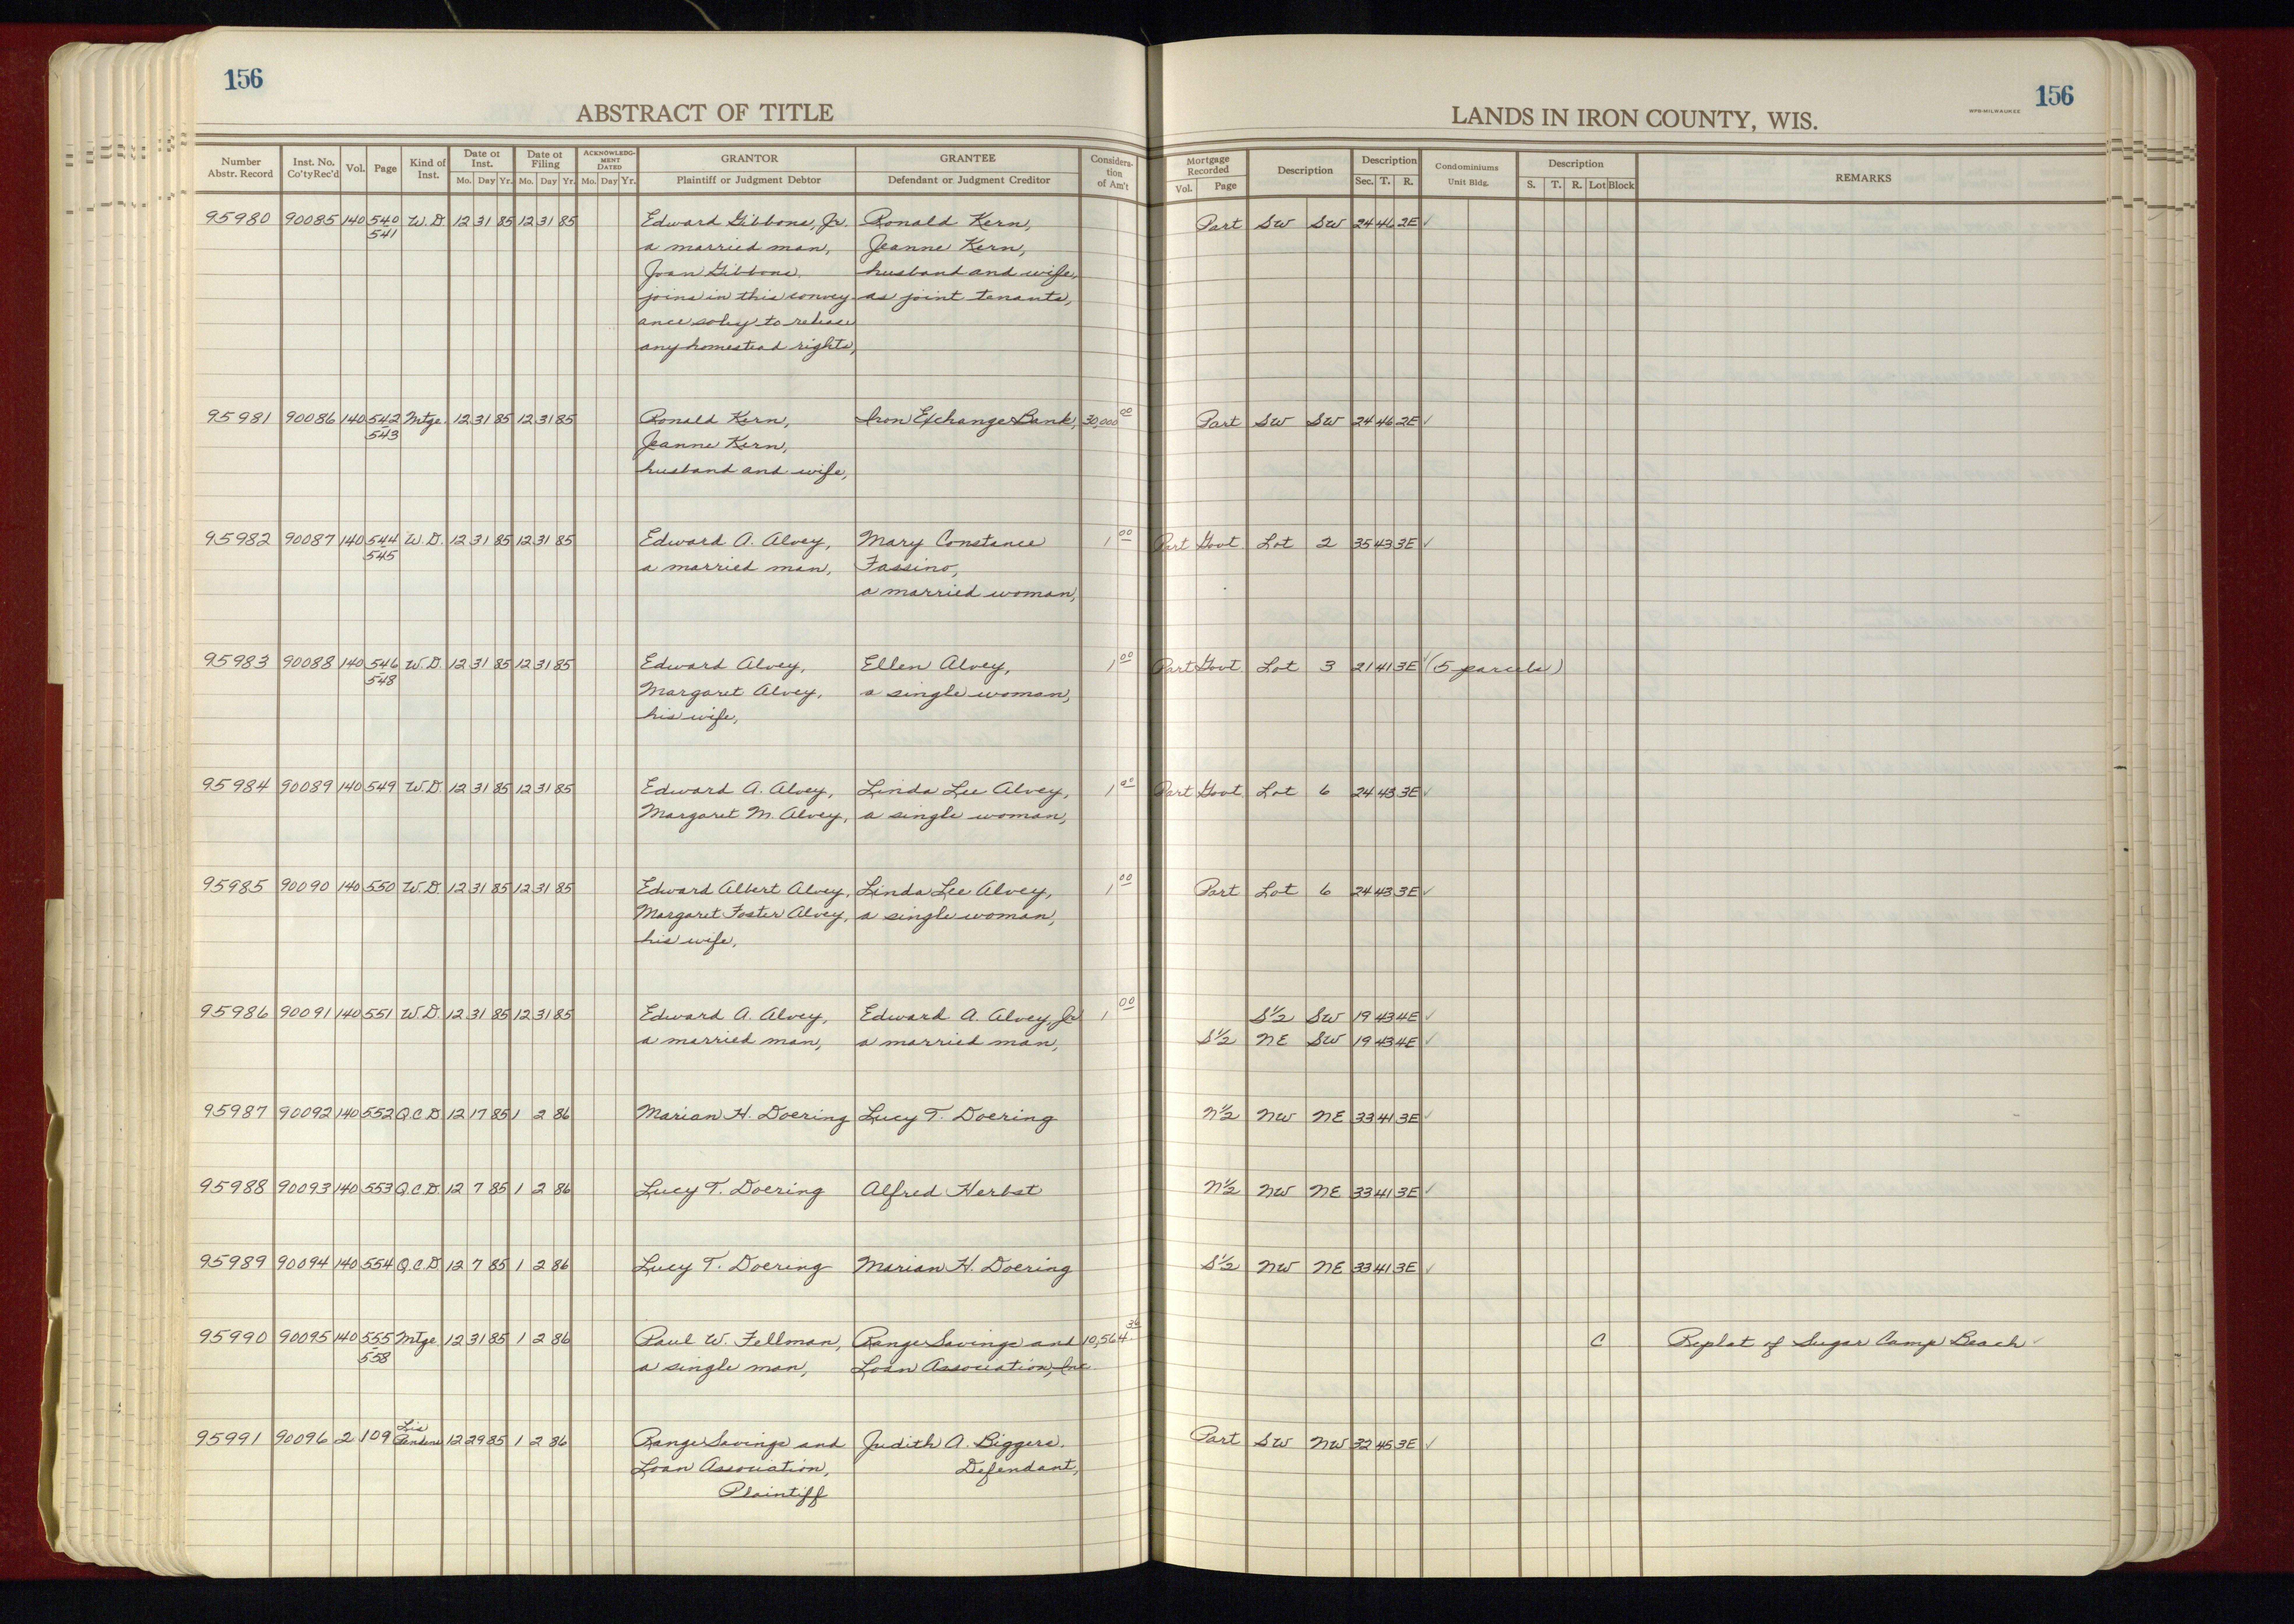 156
ABSTRACT OF TITLE
Number Abstr. Record Inst. No. Co'ty Rec'd Vol. Page Kind of Inst. Date of Inst. Mo. Day Yr. Date of Filing Mo. Day Yr. ACKNOWLEDGMENT DATED Mo. Day Yr. GRANTOR Plaintiff or Judgment Debtor GRANTEE Defendant or Judgment Creditor Consideration of Am't
LANDS IN IRON COUNTY, WIS.
WPB-MILWAUKEE
156
Mortgage Recorded Vol. Page Description Description Sec. T. R. Condominiums Unit Bldg. Description S. T. R. Lot Block REMARKS
95980 90085 140 540 W.D. 12 31 85 12 31 85 Edward Gibbons, Jr. Ronald Kern, Part SW SW 24 46 2E ✓
541 a married man, Jeanne Kern,
Joan Gibbons, husband and wife,
joins in this convey- as joint tenants,
ance soley to release
any homestead rights,
95981 90086 140 542 Mtge. 12 31 85 12 31 85 Ronald Kern, Iron Exchange Bank, 30,000 00 Part SW SW 24 46 2E ✓
543 Jeanne Kern,
husband and wife,
95982 90087 140 544 W.D. 12 31 85 12 31 85 Edward A. Alvey, Mary Constance 1 00 Part Govt. Lot 2 35 43 3E ✓
545 a married man, Fassino,
a married woman,
95983 90088 140 546 W.D. 12 31 85 12 31 85 Edward Alvey, Ellen Alvey, 1 00 Part Govt. Lot 3 21 41 3E ✓ (5 parcels)
548 Margaret Alvey, a single woman,
his wife,
95984 90089 140 549 W.D. 12 31 85 12 31 85 Edward A. Alvey, Linda Lee Alvey, 1 00 Part Govt. Lot 6 24 43 3E ✓
Margaret M. Alvey, a single woman,
95985 90090 140 550 W.D. 12 31 85 12 31 85 Edward Albert Alvey, Linda Lee Alvey, 1 00 Part Lot 6 24 43 3E ✓
Margaret Foster Alvey, a single woman,
his wife,
95986 90091 140 551 W.D. 12 31 85 12 31 85 Edward A. Alvey, Edward A. Alvey, Jr. 1 00 S½ SW 19 43 4E ✓
a married man, a married man, S½ NE SW 19 43 4E ✓
95987 90092 140 552 Q.C.D. 12 17 85 1 2 86 Marian H. Doering Lucy T. Doering N½ NW NE 33 41 3E ✓
95988 90093 140 553 Q.C.D. 12 7 85 1 2 86 Lucy T. Doering Alfred Herbst N½ NW NE 33 41 3E ✓
95989 90094 140 554 Q.C.D. 12 7 85 1 2 86 Lucy T. Doering Marian H. Doering S½ NW NE 33 41 3E ✓
95990 90095 140 555 Mtge. 12 31 85 1 2 86 Paul W. Fellman, Range Savings and 10,564 36 C Replat of Sugar Camp Beach ✓
558 a single man, Loan Association, Inc.
95991 90096 2 109 Lis Pendens 12 29 85 1 2 86 Range Savings and Judith A. Biggers. Part SW NW 32 45 3E ✓
Loan Association, Defendant,
Plaintiff